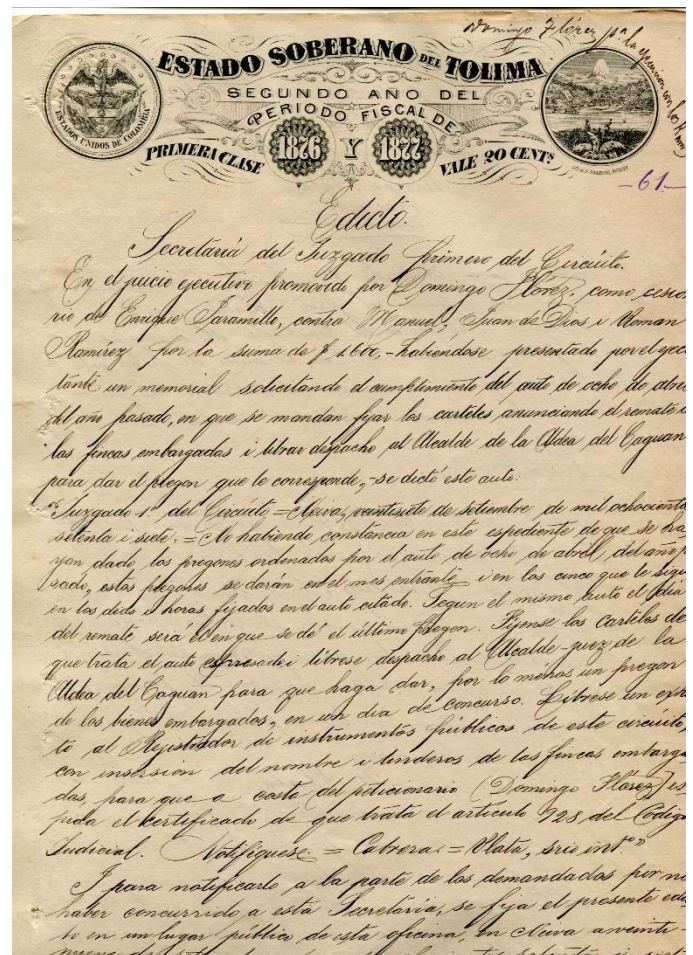 Domingo Flórez pa la
ESTADO SOBERANO DEL TOLIMA
SEGUNDO AÑO DEL
PERIODO FISCAL DE
PRIMERA CLASE 1876 Y 1877 VALE 20 CENTS
ESTADOS UNIDOS DE COLOMBIA
-61-
Edicto.
Secretaría del Juzgado primero del Circuito.
En el juicio ejecutivo promovido por Domingo Flórez, como cesiona
rio de Enrique Jaramillo, contra Manuel, Juan de Dios i Roman
Ramírez por la suma de $ 1.600,-habiéndose presentado por el ejecu
tante un memorial solicitando el cumplimiento del auto de ocho de abril
del año pasado, en que se mandan fijar los carteles anunciando el remate de
las fincas embargadas i librar despacho al Alcalde de la Aldea del Caguan
para dar el pregon que le corresponde,-se dictó este auto:
"Juzgado 1º del Circuito=Neiva, veintisiete de setiembre de mil ochocientos
setenta i siete.=No habiendo constancia en este espediente de que se ha
yan dado los pregones ordenados por el auto de ocho de abril del año pa
sado, estos pregones se darán en el mes entrante i en los cinco que le siguen
en los dias i horas fijados en el auto citado. Segun el mismo auto el dia
del remate será el en que se dé el último pregon. Fíjense los carteles de
que trata el auto espresado i líbrese despacho al Alcalde-juez de la
Aldea del Caguan para que haga dar, por lo ménos un pregon
de los bienes embargados, en un dia de concurso. Líbrese un exhor
to al Rejistrador de instrumentos públicos de este circuito,
con insersion del nombre i linderos de las fincas embarga
das, para que a costa del peticionario (Domingo Flórez) es
pida el certificado de que trata el artículo 928 del Código
Judicial. Notifíquese.=Cabrera.=Plata, srio intº."
I para notificarlo a la parte de los demandados por no
haber concurrido a esta Secretaría, se fija el presente edic
to en un lugar público de esta oficina, en Neiva a veinti-
nueve de setiembre de mil ochocientos setenta i siete